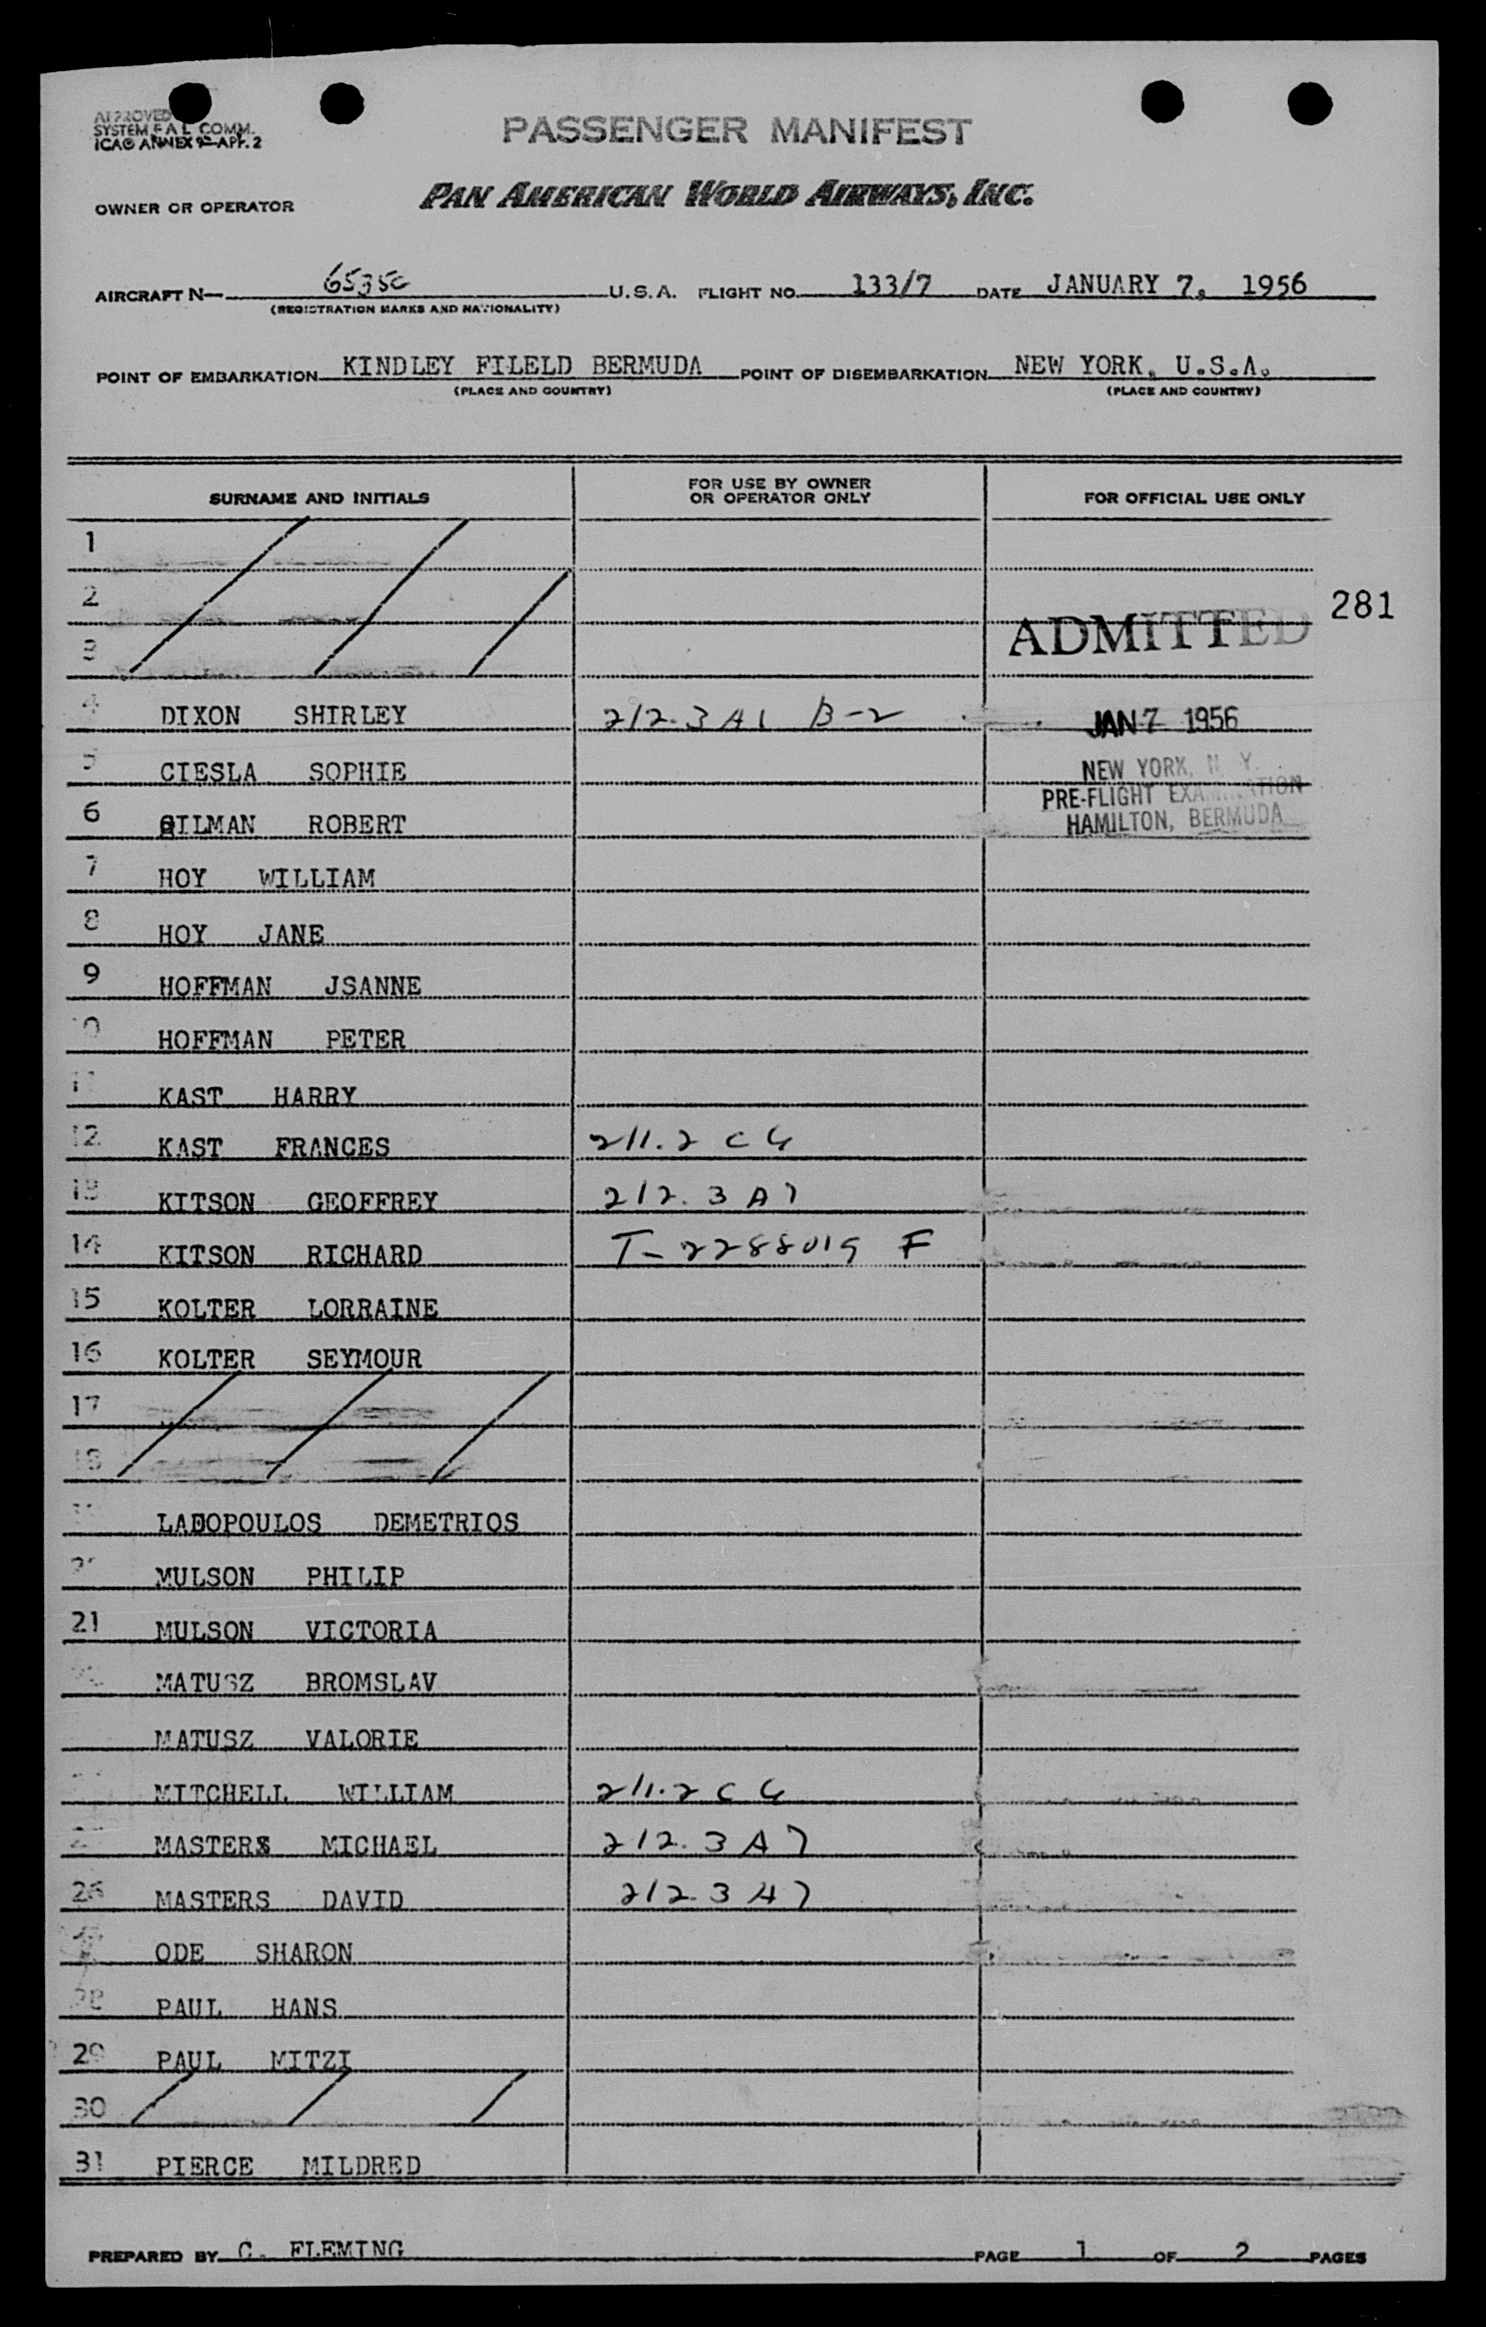 APPROVED
SYSTEM F A L COMM.
ICAO ANNEX 9-APP. 2
PASSENGER MANIFEST
OWNER OR OPERATOR PAN AMERICAN WORLD AIRWAYS, INC.
AIRCRAFT N— 6535C U.S.A. FLIGHT NO. 133/7 DATE JANUARY 7, 1956
(REGISTRATION MARKS AND NATIONALITY)
POINT OF EMBARKATION KINDLEY FILELD BERMUDA POINT OF DISEMBARKATION NEW YORK, U.S.A.
(PLACE AND COUNTRY) (PLACE AND COUNTRY)
SURNAME AND INITIALS FOR USE BY OWNER OR OPERATOR ONLY FOR OFFICIAL USE ONLY
1
2 281
3 ADMITTED
4 DIXON SHIRLEY 212.3 A1 B-2 JAN 7 1956
5 CIESLA SOPHIE NEW YORK, N. Y.
PRE-FLIGHT EXAMINATION
6 GILMAN ROBERT HAMILTON, BERMUDA
7 HOY WILLIAM
8 HOY JANE
9 HOFFMAN JSANNE
10 HOFFMAN PETER
11 KAST HARRY
12 KAST FRANCES 211.2 C G
13 KITSON GEOFFREY 212.3 A7
14 KITSON RICHARD T-2288019 F
15 KOLTER LORRAINE
16 KOLTER SEYMOUR
17
18
LABOPOULOS DEMETRIOS
MULSON PHILIP
21 MULSON VICTORIA
MATUSZ BROMSLAV
MATUSZ VALORIE
MITCHELL WILLIAM 211.2 C G
MASTERS MICHAEL 212.3 A7
26 MASTERS DAVID 212.3 A7
ODE SHARON
28 PAUL HANS
29 PAUL MITZI
30
31 PIERCE MILDRED
PREPARED BY C. FLEMING PAGE 1 OF 2 PAGES